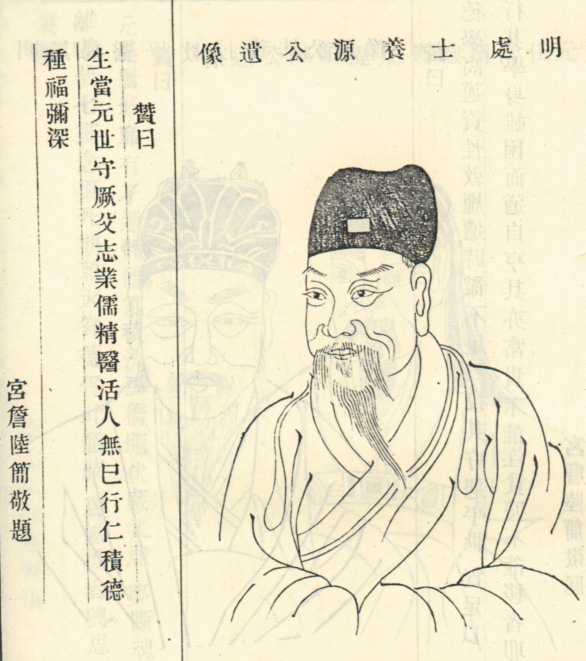 明處士養源公遺像
贊曰
生當元世守厥父志業儒精醫活人無已行仁積德
種福彌深
宮詹陸簡敬題